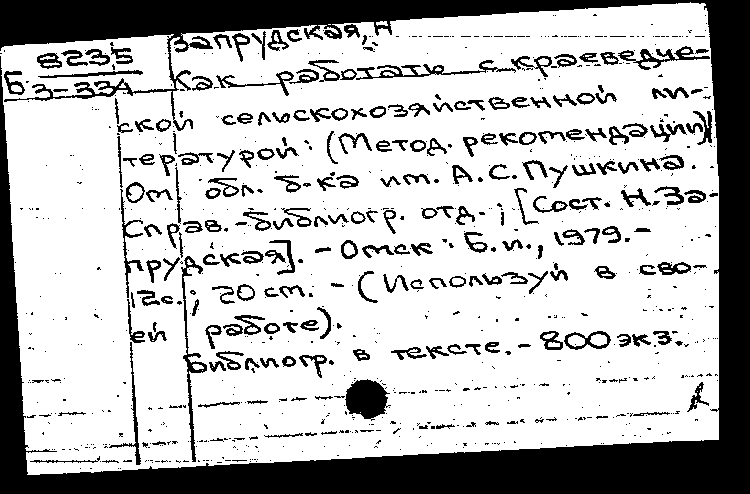 8235
Б З-334
Запрудская, Н
Как работать с краеведче-
ской сельскохозяйственной ли-
тературой: (Метод. рекомендации)/
Ом. обл. б-ка им. А.С. Пушкина.
Справ.-библиогр. отд.; [Сост. Н. За-
прудская]. - Омск: Б. и., 1979. -
12с.; 20 см. - (Используй в сво-
ей работе).
Библиогр. в тексте. - 800 экз.